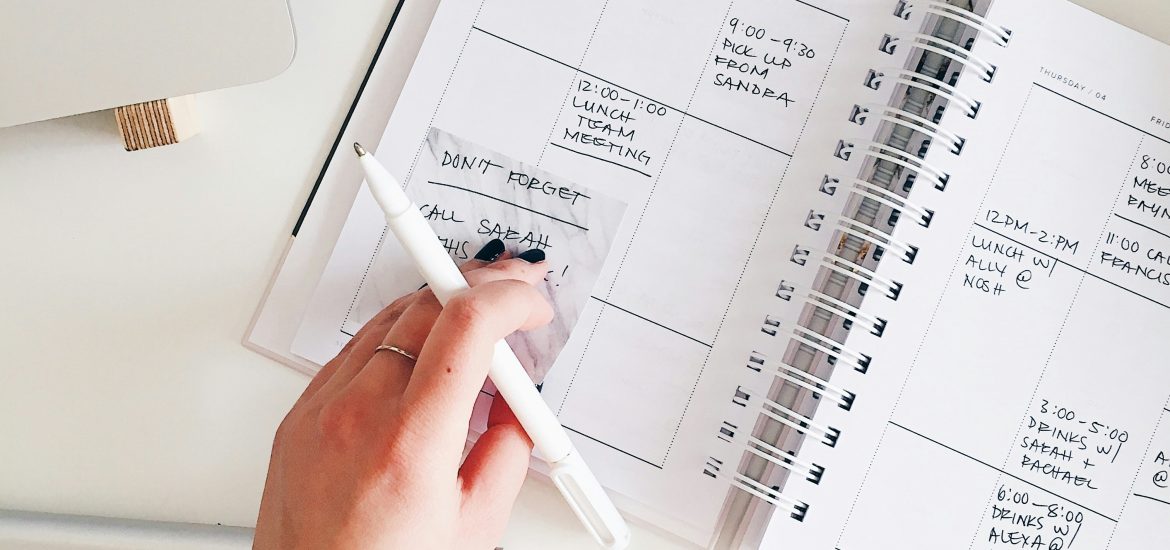 9:00-9:30
PICK UP
FROM
SANDRA
12:00-1:00
LUNCH
TEAM
MEETING
DON'T FORGET
CALL SARAH
!
THURSDAY / 04
12PM-2:PM
LUNCH W/
ALLY @
NOSH
8:00
11:00 CA
FRANCIS
3:00-5:00
DRINKS W/
SARAH +
RACHAEL
6:00-8:00
DRINKS W/
ALEXA @
@